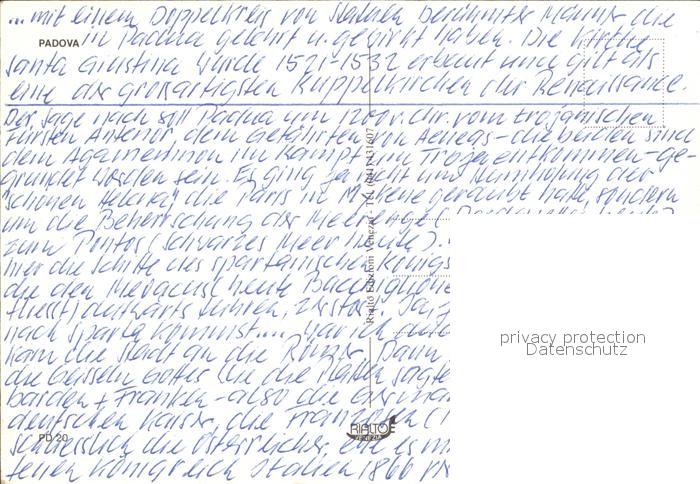 ...mit einem Doppelkreis von Statuen berühmter Männer, die
PADOVA
in Padua gelehrt u. gewirkt haben. Die Kirche
Santa Giustina wurde 1521-1532 erbaut und gilt als
eine der großartigsten Kuppelkirchen der Renaissance.
Der Sage nach soll Padua um 1200 v. Chr. vom trojanischen
Fürsten Antenor dem Gefährten von Aeneas - die beiden sind
dem Agamemnon im Kampf um Troja entkommen - ge-
gründet worden sein. Es ging ja nicht um Heimholung der
schönen Helena, die Paris in Mykene geraubt hatte, sondern
um die Beherrschung der Meerenge
zum Pontos (Schwarzes Meer heute).
hier die Schiffe des spartanischen Königs
die den Medoacus (heute Bacchiglione
fliesst)
nach Sparta kommst.... war ich
kam die Stadt an die Römer. Dann
die Geisseln Gottes (wie die Paduaner sagte
barden + Franken -
deutschen Kaiser, die Franzosen
PD 20
schliesslich die Österreicher, ehe es
Königreich Italien 1866
Rialto Edizioni Venezia - Tel. (041)
RIALTO
VENEZIA
privacy protection
Datenschutz